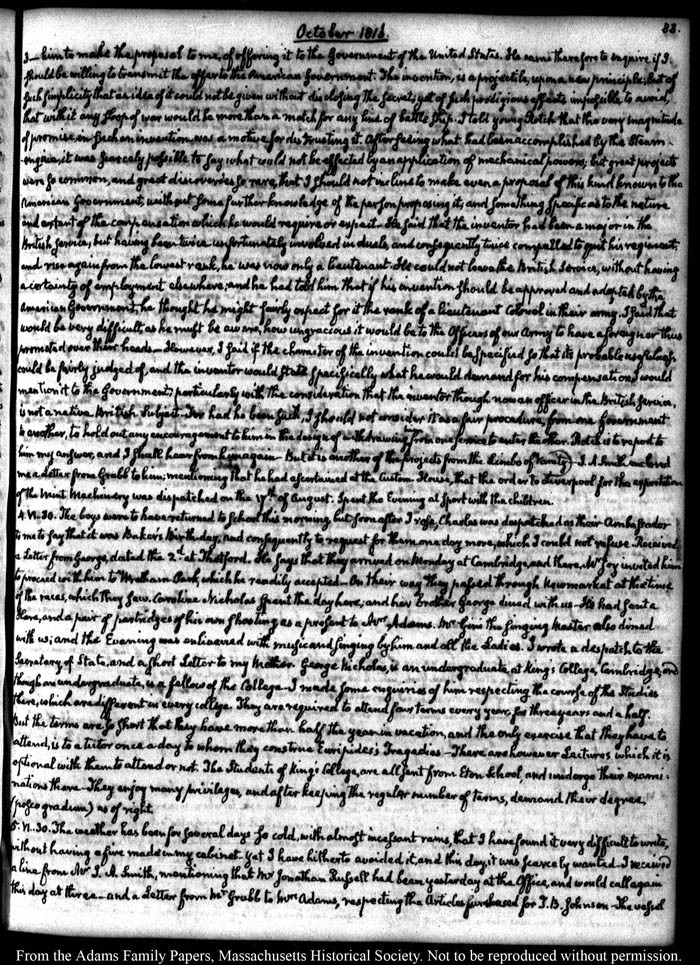 October 1816.
88.
I — him to make the proposal to me, of offering it to the Government of the United States. He came therefore to enquire if I
should be willing to transmit the offer to the American Government. The invention, is a projectile, upon a new principle; but of
such simplicity that an idea of it could not be given without disclosing the secret; yet of such prodigious effects, impossible to avoid,
that with it any sloop of war would be more than a match for any line of battle ship. I told young Rotch that the very magnitude
of promise, in such an invention, was a motive for distrusting it. After seeing what had been accomplished by the Steam-
engine, it was scarcely possible to say what could not be effected by an application of mechanical powers; but great projects
were so common, and great discoveries so rare, that I should not incline to make even a proposal of this kind known to the
American Government, without some further knowledge of the person proposing it, and something specific as to the nature
and extent of the compensation which he would require or expect. He said that the inventor had been a major in the
British service, but having been twice unfortunately involved in duels, and consequently twice compelled to quit his regiment,
and rise again from the lowest rank, he was now only a lieutenant. He could not leave the British service, without having
a certainty of employment elsewhere; and he had told him that if his invention should be approved and adopted by the
American Government, he thought he might fairly expect for it the rank of a lieutenant Colonel in their army. I said that
would be very difficult, as he must be aware, how ungracious it would be to the Officers of our Army to have a foreigner thus
promoted over their heads — However, I said if the character of the invention could be specified so that its probable usefulness
could be fairly judged of, and the inventor would state specifically what he would demand for his compensation, I would
mention it to the Government; particularly with the consideration that the inventor though now an officer in the British service,
is not a native British subject. For had he been such, I should not consider it as a fair procedure, from one Government
to another, to hold out any encouragement to him in the design of withdrawing from one service to enter the other. Rotch is to report to
him my answer, and I shall hear from him again — But it is another of the projects from the Limbo of Vanity. J. A. Smith enclosed
me a letter from Grubb to him; mentioning that he had ascertained at the Custom House, that the order to Liverpool for the exportation
of the Mint Machinery was dispatched on the 17th of August. Spent the Evening at sport with the children.
4. VI. 30. The boys were to have returned to School this morning, but soon after I rose, Charles was despatched as their Ambassador
to me to say that it was Baker's birth-day, and consequently to request for them one day more, which I could not refuse. Received
a Letter from George, dated the 2d at Thetford. He says that they arrived on Monday at Cambridge, and there, Mr Joy invited him
to proceed with him to Wretham Park, which he readily accepted — On their way they passed through Newmarket at the time
of the races, which they saw. Caroline Nicholas spent the day here, and her Brother George dined with us — He had sent a
Hare, and a pair of partridges of his own shooting as a present to Mrs. Adams. Mr the singing Master also dined
with us; and the Evening was enlivened with music and singing by him and all the Ladies. I wrote a despatch to the
Secretary of State, and a short Letter to my Mother. George Nicholas, is an undergraduate, at King's College, Cambridge, and
though an undergraduate, is a fellow of the College — I made some enquiries of him respecting the course of the Studies
there, which are different in every college. They are required to attend four terms every year, for three years and a half.
But the terms are so short that they have more than half the year in vacation, and the only exercise that they have to
attend, is to a tutor once a day to whom they construe Euripides's Tragedies — There are however Lectures which it is
optional with them to attend or not. The Students of King's College, are all sent from Eton School, and undergo their exami-
nations there — They enjoy many privileges, and after keeping the regular number of terms, demand their degree,
(posco gradum) as of right.
5. VI. 30. The weather has been for several days so cold, with almost incessant rains, that I have found it very difficult to write,
without having a fire made in my cabinet. Yet I have hitherto avoided it, and this day, it was scarcely wanted. I received
a line from Mr J. A. Smith, mentioning that Mr Jonathan Russell had been yesterday at the Office, and would call again
this day at three — and a Letter from Mr Grubb to Mrs Adams, respecting the Articles purchased for T. B. Johnson — The vessel
From the Adams Family Papers, Massachusetts Historical Society. Not to be reproduced without permission.